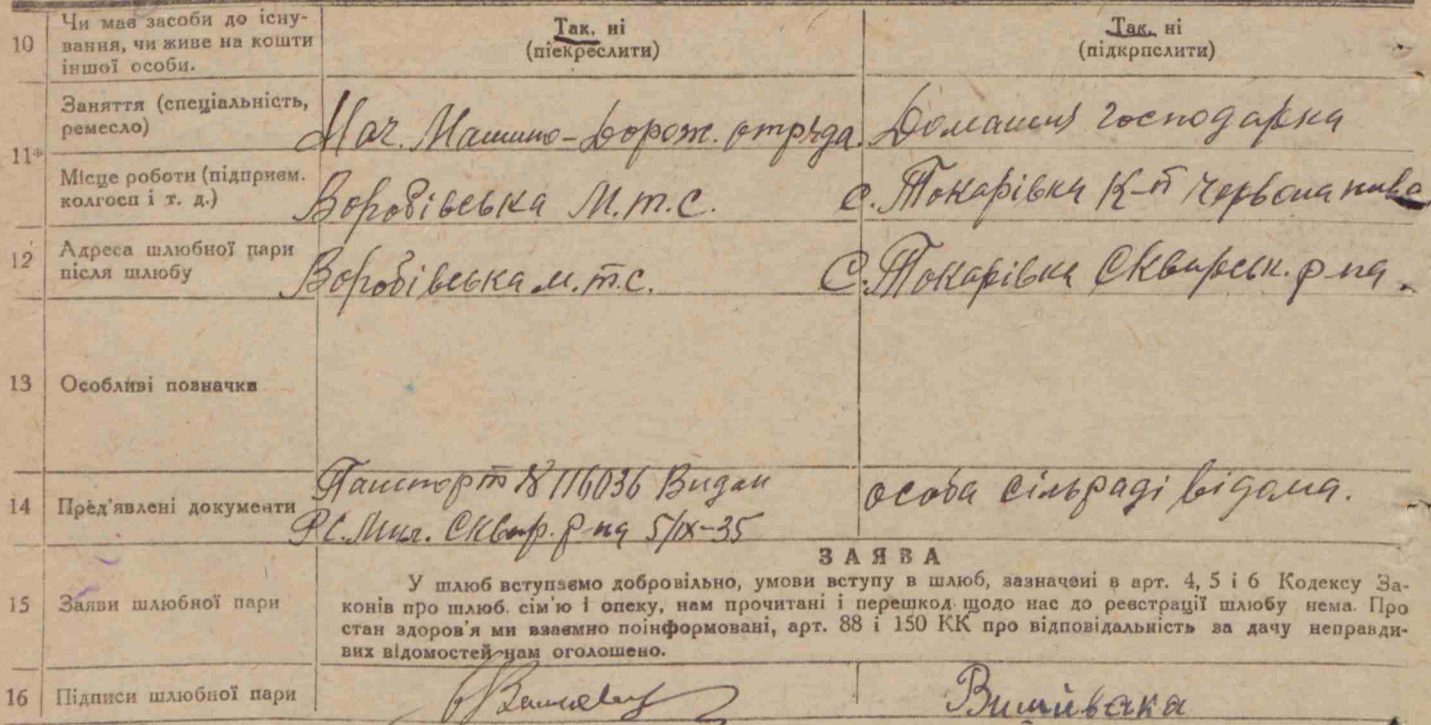 10 Чи має засоби до існу-
вання, чи живе на кошти
іншої особи.
Так, ні
(піекреслити)
Так, ні
(підкрпслити)
11*
Заняття (спеціальність,
ремесло)
Нач. Машино-дорож. отряда.
Домашня господарка
Місце роботи (підприєм.
колгосп і т. д.)
Воробіівська М.т.с.
с. Токарівка К-п Червона нива
12 Адреса шлюбної пари
після шлюбу
Воробіівська м.т.с.
С. Токарівка Сквирськ. р-на.
13 Особливі позначки
14 Пред'явлені документи
Пашторт № 116036 Видан
РС. Мил. Сквир. р-на 5/IX-35
особа сільраді відома.
15 Заяви шлюбної пари
ЗАЯВА
У шлюб вступаємо добровільно, умови вступу в шлюб, зазначені в арт. 4, 5 і 6 Кодексу За-
конів про шлюб. сім'ю і опеку, нам прочитані і перешкод щодо нас до реєстрації шлюбу нема. Про
стан здоров'я ми взаємно поінформовані, арт. 88 і 150 КК про відповідальність за дачу неправди-
вих відомостей нам оголошено.
16 Підписи шлюбної пари